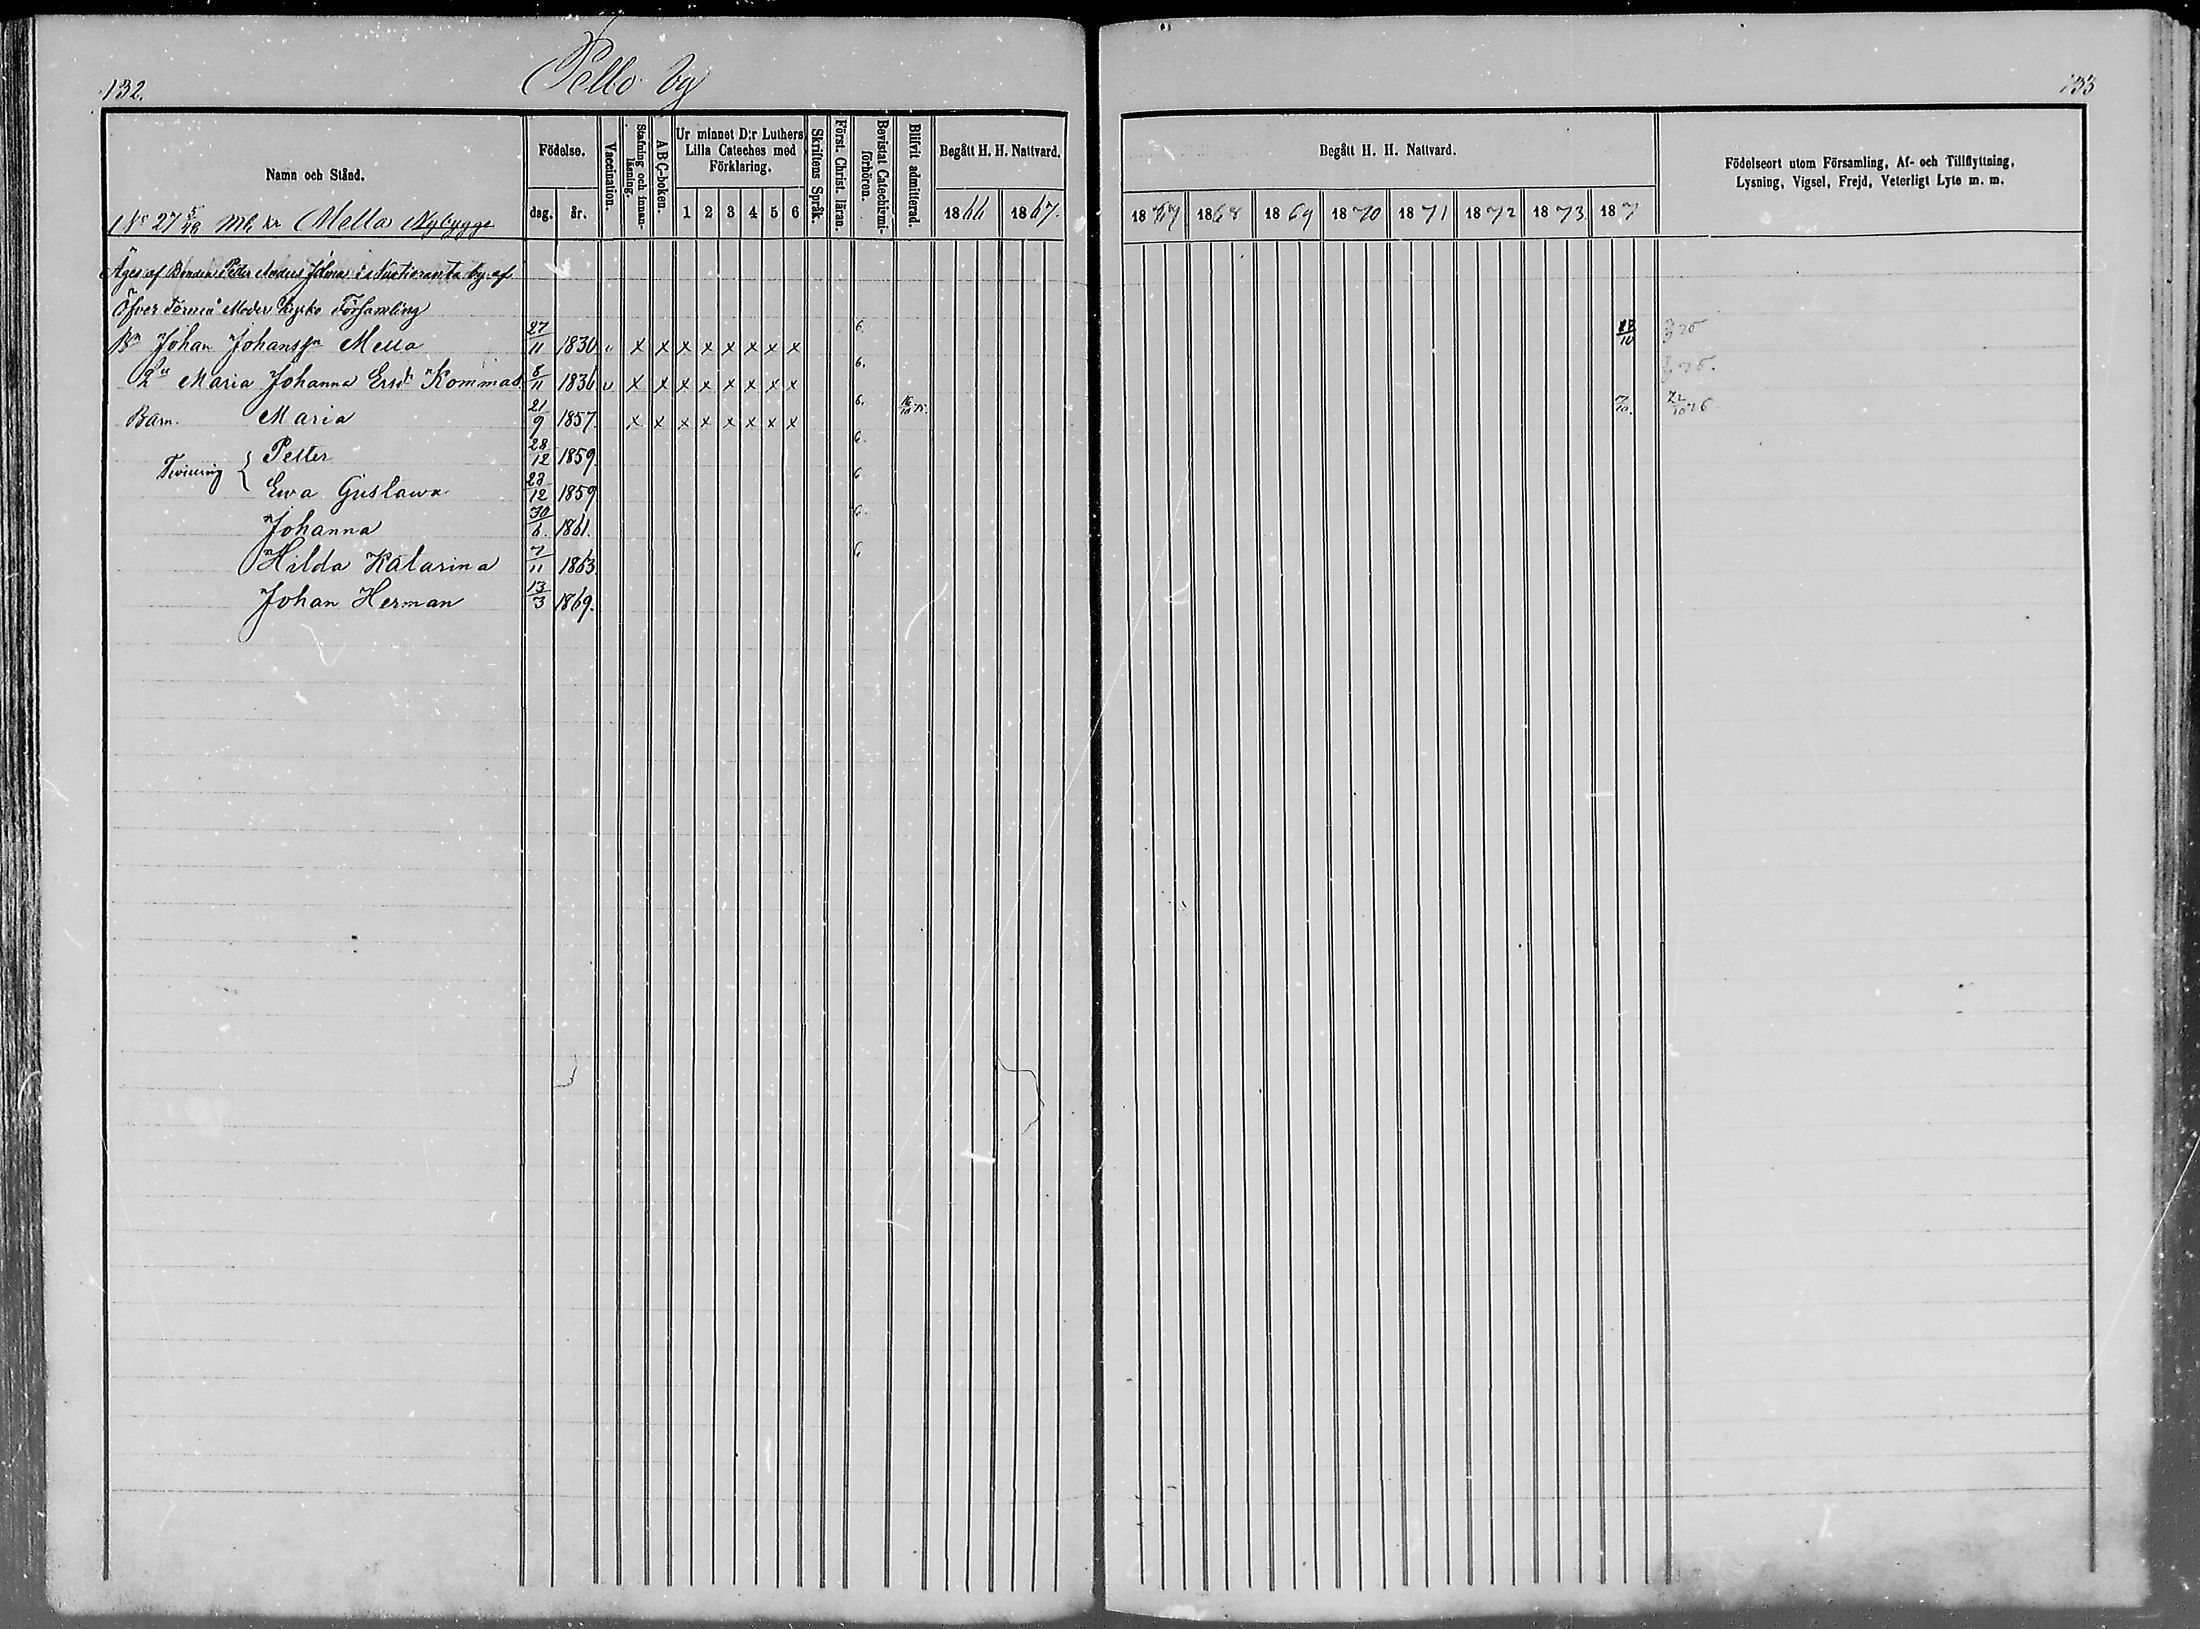 132.
Pello by
133
Namn och Stånd.
Födelse.
dag. år.
Vaccination.
Stafning och innan-läsning.
A B C-boken.
Ur minnet D:r Luthers Lilla Cateches med Förklaring.
1 2 3 4 5 6
Skriftens Språk.
Först. Christ. läran.
Bevistat Catechismi-förhören.
Blifvit admitterad.
Begått H. H. Nattvard.
1866 1867.
Begått H. H. Nattvard.
1867 1868 1869 1870 1871 1872 1873 187
Födelseort utom Församling, Af- och Tillflyttning, Lysning, Vigsel, Frejd, Veterligt Lyte m. m.
No 27 5/48 Ml. kr Mella Nybygge
Äges af Bonden Petter Anders i by af
Öfver Torneå Moder Kyrko Församling
Bn Johan Johanss:n Mella 27/11 1830 v x x x x x x x x 6. 3 76
Maria Johanna Ersdr Kommas 8/11 1836 v x x x x x x x x 6. 3 76.
Barn. Maria 21/9 1857. x x x x x x x x 6. 16/10 75. 22/10 76
Tvilling { Petter 28/12 1859. 6.
Ewa Gustawa 28/12 1859 6
Johanna 30/6. 1861. 6.
Hilda Katarina 7/11 1863. 6
Johan Herman 13/3 1869.